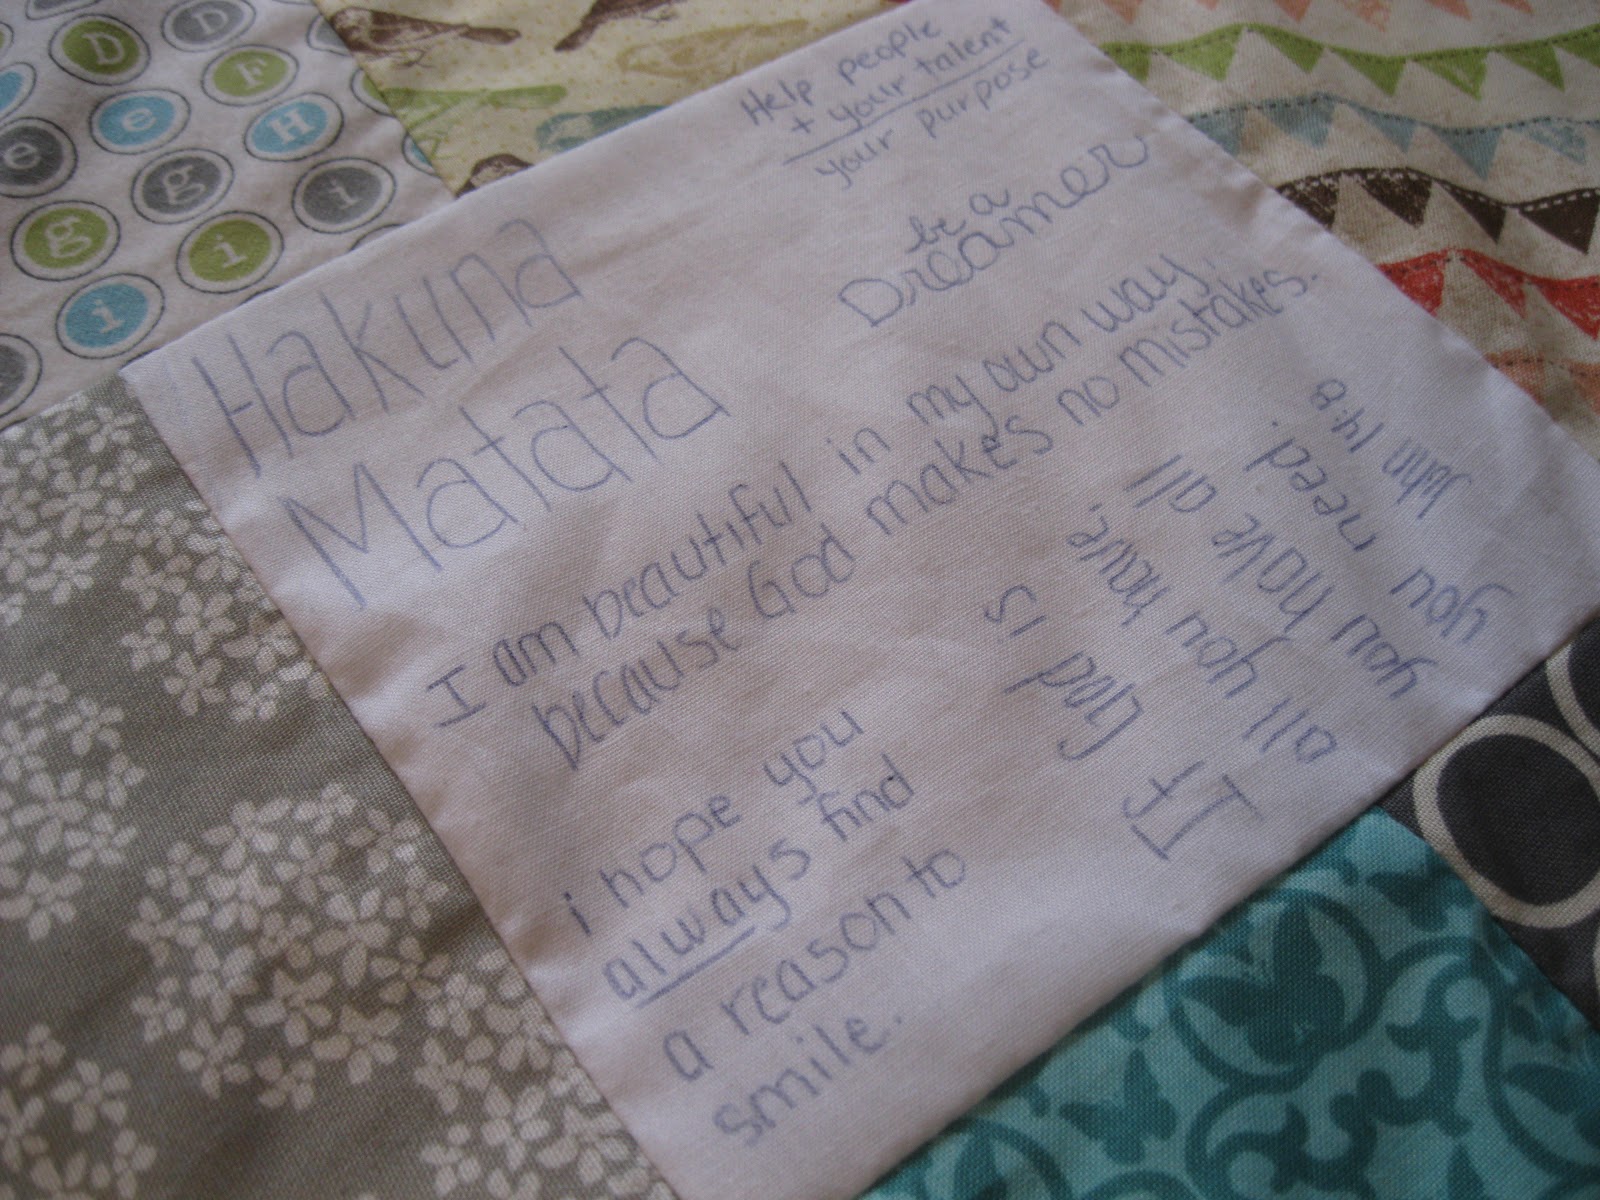 D D
F
e H
e g i
g i
i
Help people
+ your talent
your purpose
be a
Dreamer
Hakuna
Matata
I am beautiful in my own way,
because God makes no mistakes.
i hope you
always find
a reason to
smile.
If
God is
all you have,
you have all
you need.
John 14:8